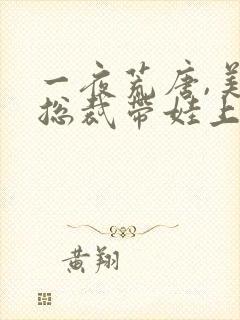 一夜荒唐,美
总裁带娃上
黄翔